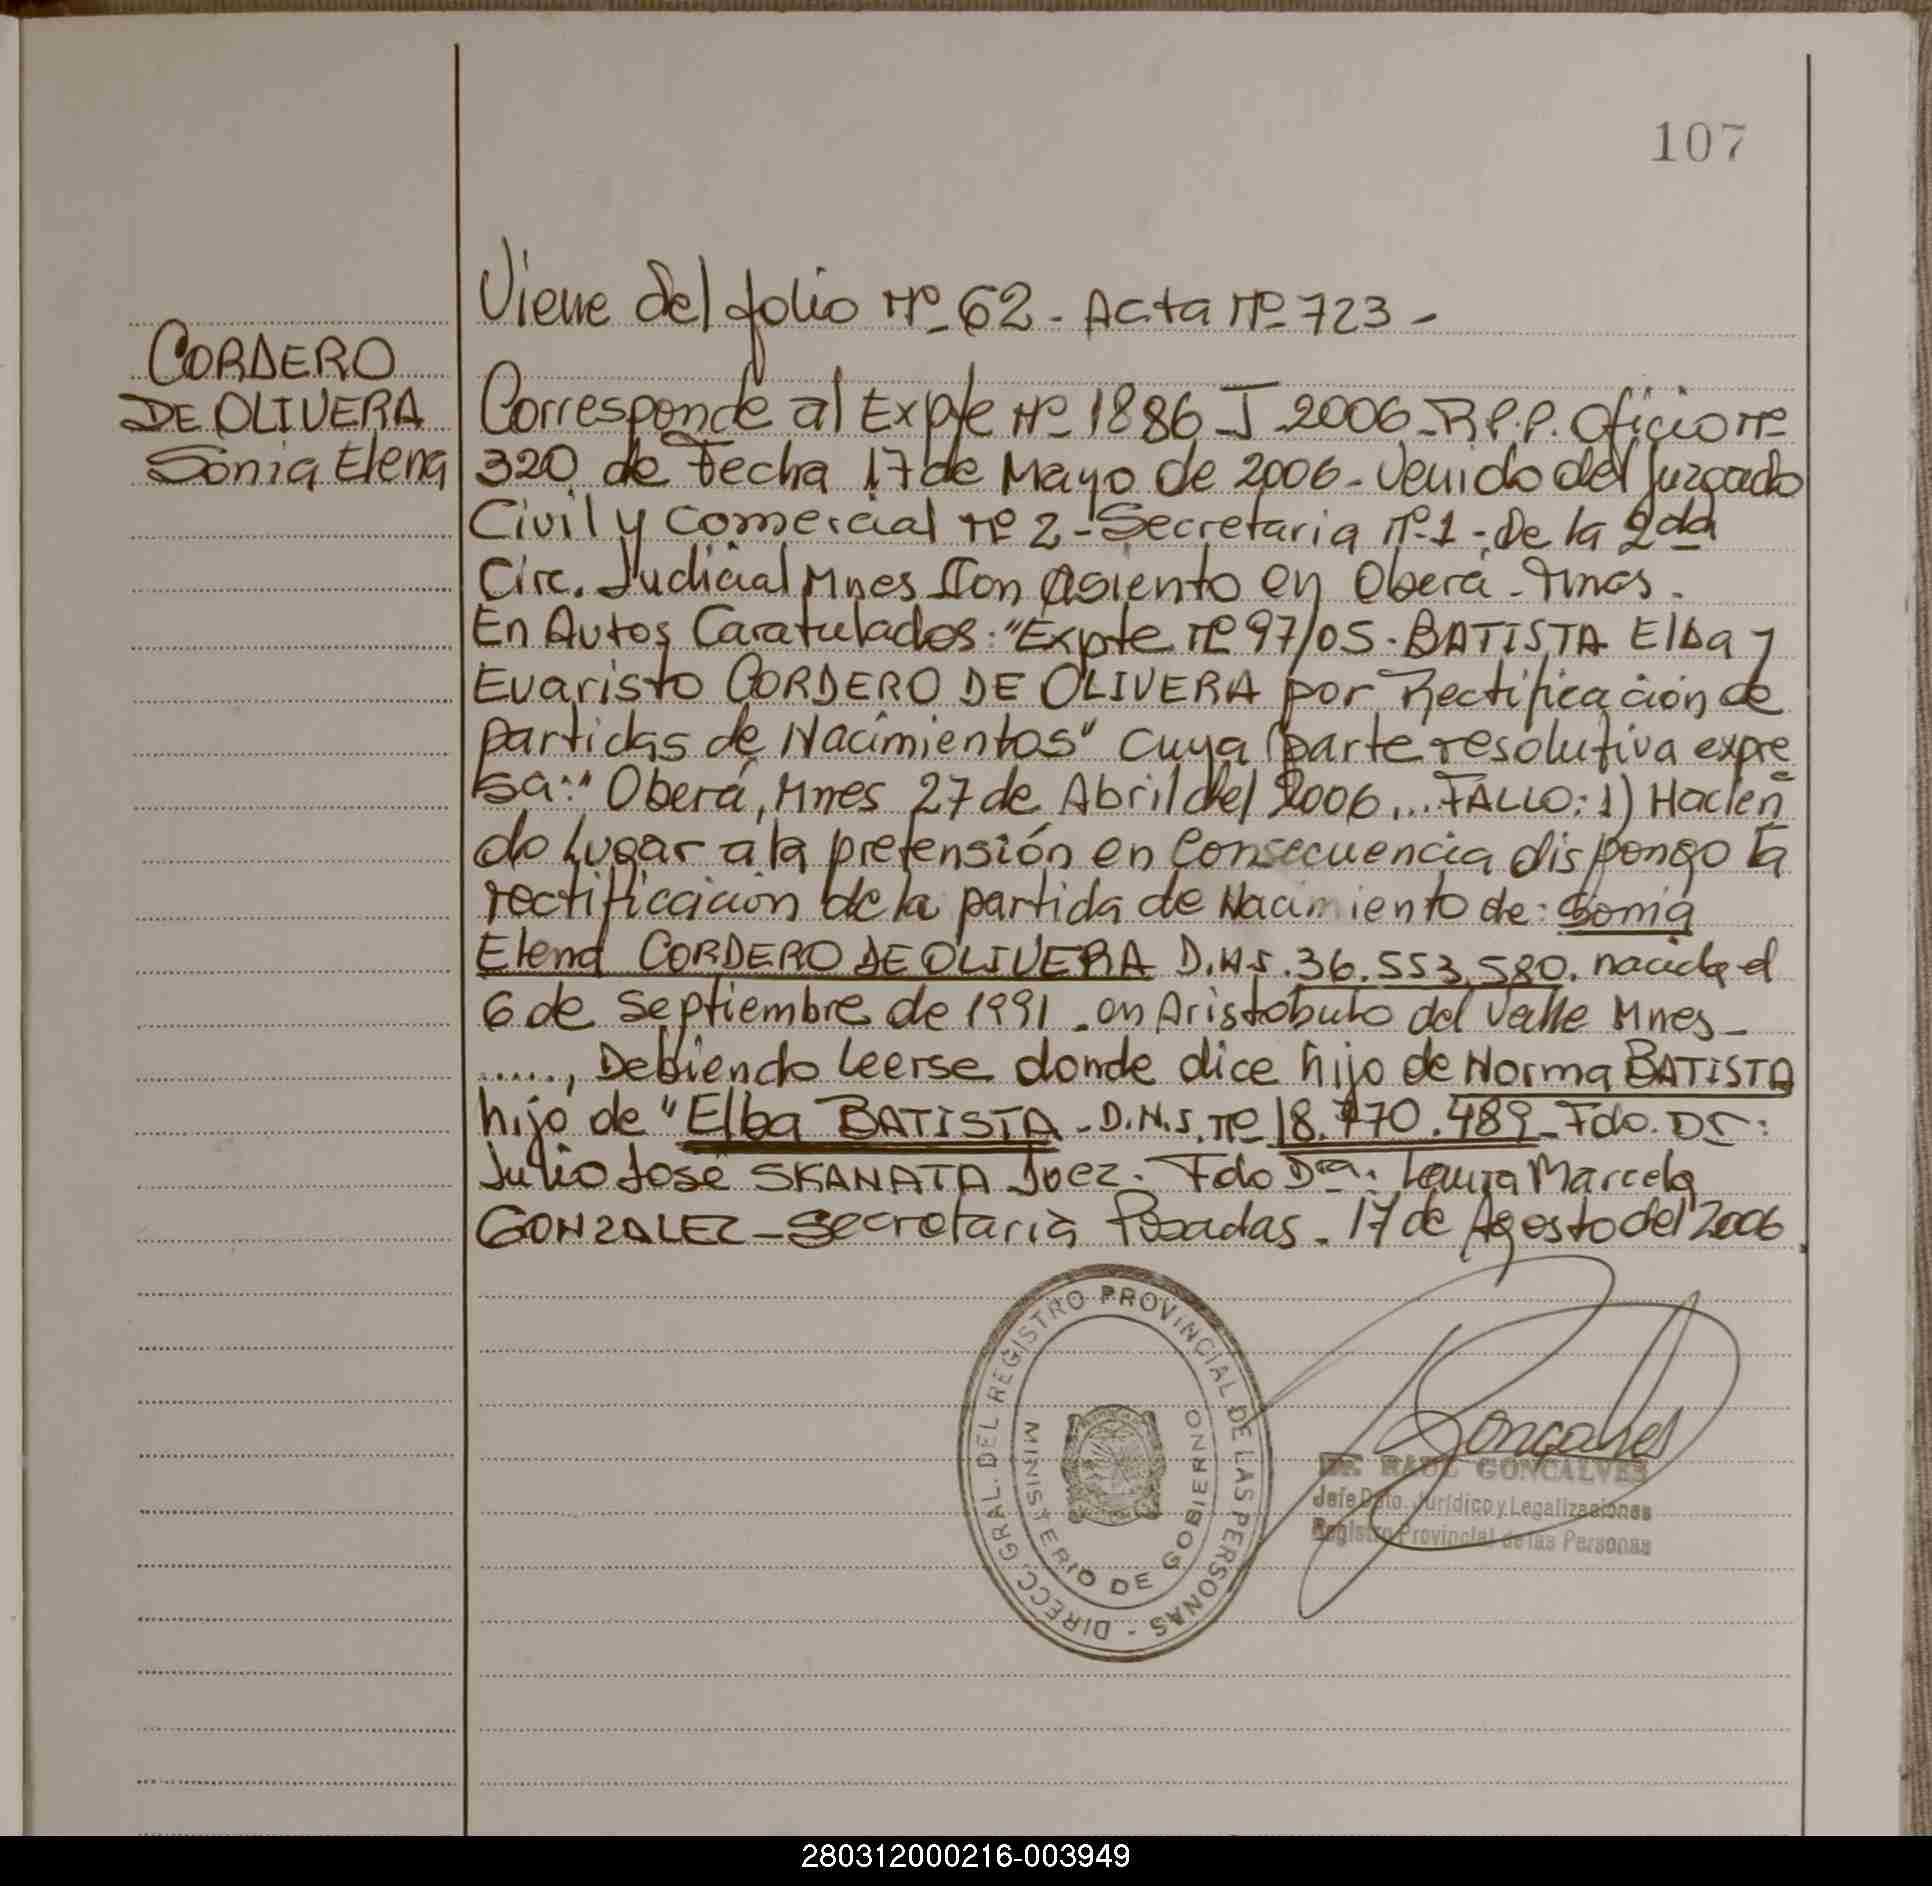 107
Viene del folio Nº 62 - Acta Nº 723 -
CORDERO
DE OLIVERA
Sonia Elena
Corresponde al Expte Nº 1886 - J 2006 - R.P.P. Oficio Nº
320 de Fecha 17 de Mayo de 2006 - Venido del Juzgado
Civil y Comercial Nº 2 - Secretaria Nº 1 - De la 2da
Circ. Judicial Mnes Con Asiento en Oberá - Mnes.
En Autos Caratulados: "Expte Nº 97/05 - BATISTA Elba y
Evaristo CORDERO DE OLIVERA por Rectificación de
partidas de Nacimientos" cuya parte resolutiva expre
sa:" Oberá, Mnes 27 de Abril del 2006... FALLO: 1) Hacien
do Lugar a la pretensión en Consecuencia dispongo la
rectificación de la partida de Nacimiento de: Sonia
Elena CORDERO DE OLIVERA D.N.I. 36.553.580. nacida el
6 de Septiembre de 1991 - en Aristobulo del Valle Mnes -
....., Debiendo leerse donde dice hijo de Norma BATISTA
hijo de "Elba BATISTA - D.N.I. Nº 18.770.489 - Fdo. Dr:
Julio José SKANATA Juez. Fdo Dra. Laura Marcela
GONZALEZ - Secretaria Posadas - 17 de Agosto del 2006.
DIRECC. GRAL. DEL REGISTRO PROVINCIAL DE LAS PERSONAS -
MINISTERIO DE GOBIERNO
Goncalves
Dr. RAUL GONCALVES
Jefe Dpto. Jurídico y Legalizaciones
Registro Provincial de las Personas
280312000216-003949